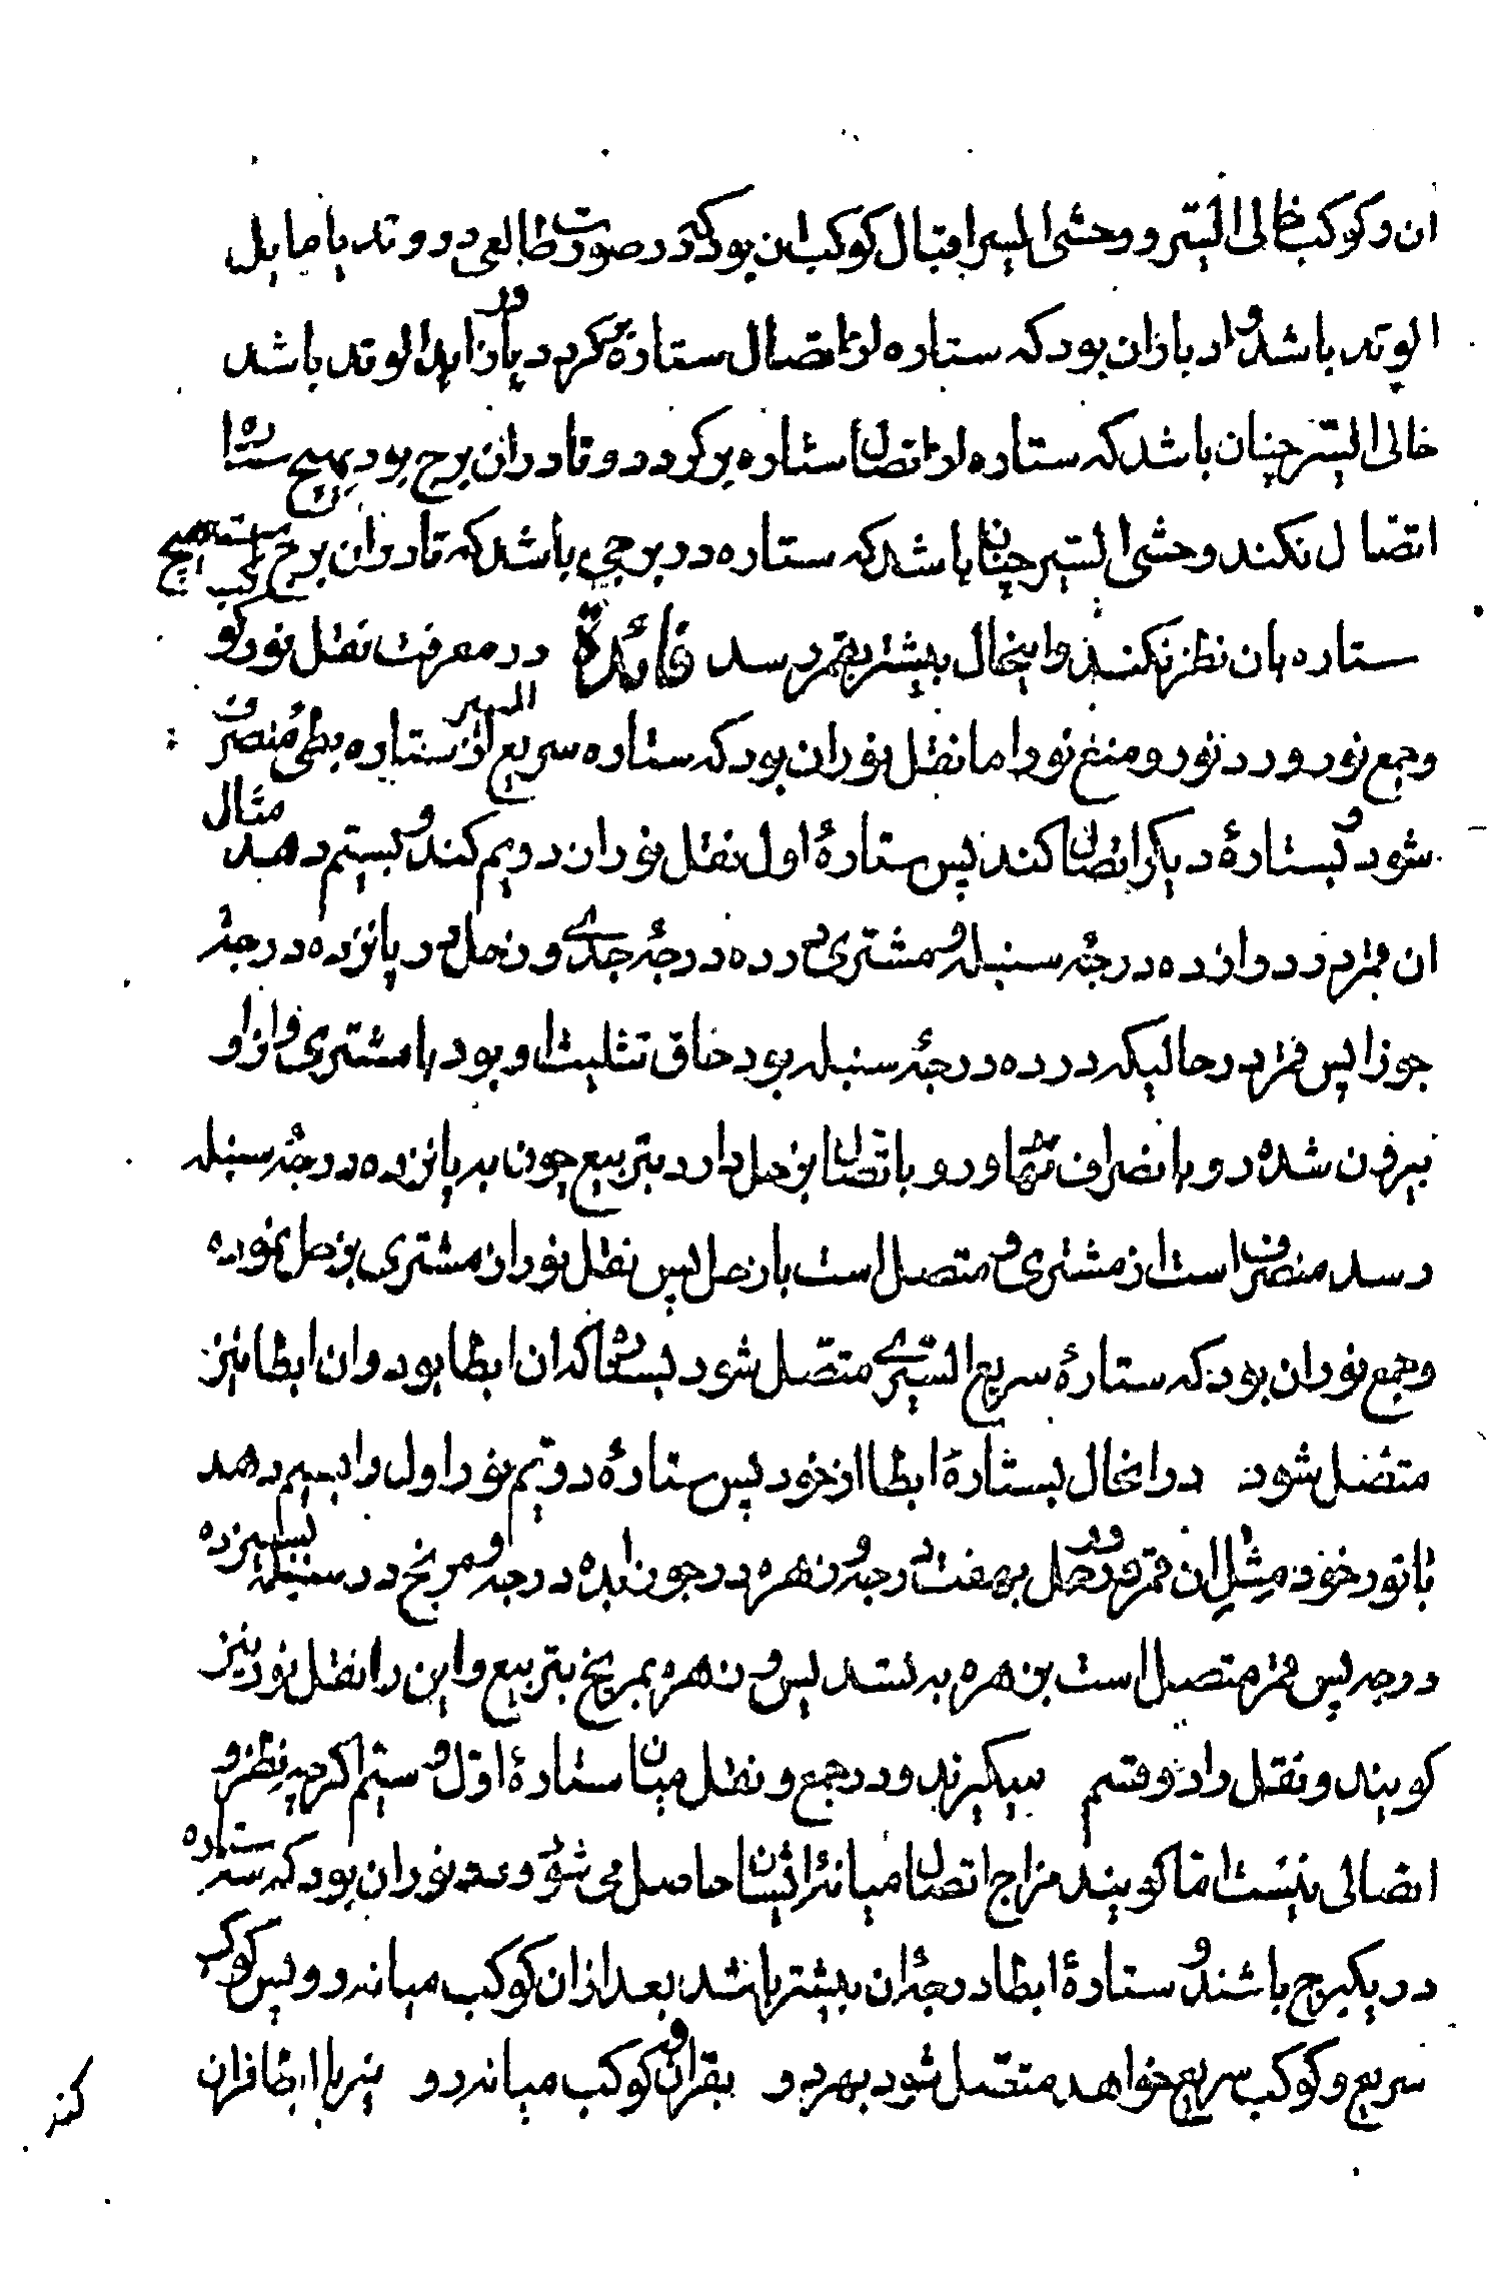 ان و کوکب خالی السیر و وحشی السیر اقبال کوکب ان بود که در صورت طالعی در وتد یا مایل
الوتد باشد و ادبار ان بود که ستاره از اتصال ستاره برگردد و در زایل الوتد باشد
خالی السیر چنان باشد که ستاره از اتصال ستاره برگردد و تا در ان برج بود بهیچ ستاره
اتصال نکند وحشی السیر چنان باشد که ستاره در برجی باشد که تا در ان برج است هیچ
ستاره بان نظر نکند و اینحال بیشتر بقمر رسد فائدة در معرفت نقل نور کو
وجمع نور و رد نور و منع نور اما نقل نور ان بود که ستاره سریع السیر از ستاره بطی منصرف
شود و بستارهٔ دیگر اتصال کند پس ستارهٔ اول نقل نور ان دویم کند و بسیم دهد مثال
ان قمر در دوازده درجهٔ سنبله و مشتری در ده درجهٔ جدی و زحل در پانزده درجهٔ
جوزا پس قمر در حالیکه در ده درجهٔ سنبله بود حاق تثلیث او بود با مشتری و از او
بیرون شده رو بانصراف نهاد و رو باتصال زحل دارد بتربیع چون به پانزده درجه سنبله
رسد منصرف است از مشتری و متصل است با زحل پس نقل نور از مشتری بزحل نموده
وجمع نور ان بود که ستارهٔ سریع السیری متصل شود بستاره که از ان ابطا بود و ان ابطا نیز
متصل شود در انحال بستارهٔ ابطا از خود پس ستارهٔ دویم نور اول را بسیم دهد
با نور خود مثل ان قمر در حمل بهفت درجه و زهره در جوزا بده درجه و مریخ در سنبله بسیزده
درجه پس قمر متصل است بزهره به تسدیس و زهره بمریخ بتربیع و این را نقل نور نیز
گویند و نقل را دو قسم میگیرند و در جمع و نقل میان ستارهٔ اول و سیم اگرچه نظر و
اتصالی نیست اما گویند مزاج اتصال میانه ایشان حاصل می شود و رد نور ان بود که سه ستاره
در یکبرج باشند و ستارهٔ ابطا درجهٔ ان بیشتر باشد بعد از ان کوکب میانه رو و پس کوکب
سریع و کوکب سریع خواهد متصل شود بهر دو بقران و کوکب میانه رو نیز با ابطا قران
کند